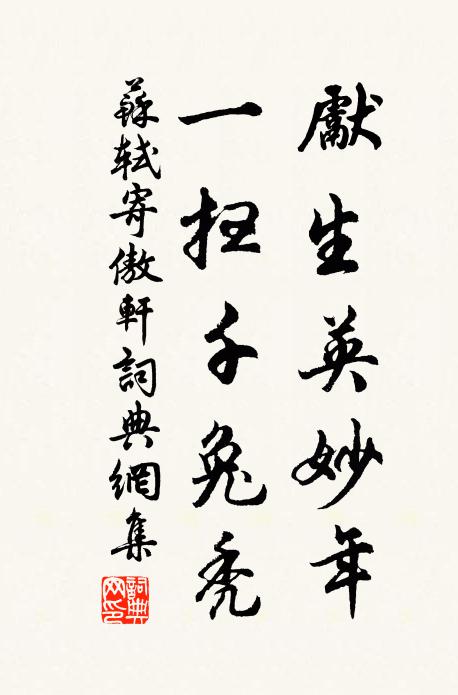 獻生英妙年
一掃千兔禿
蘇軾寄傲軒詞典網集
詞典
网印